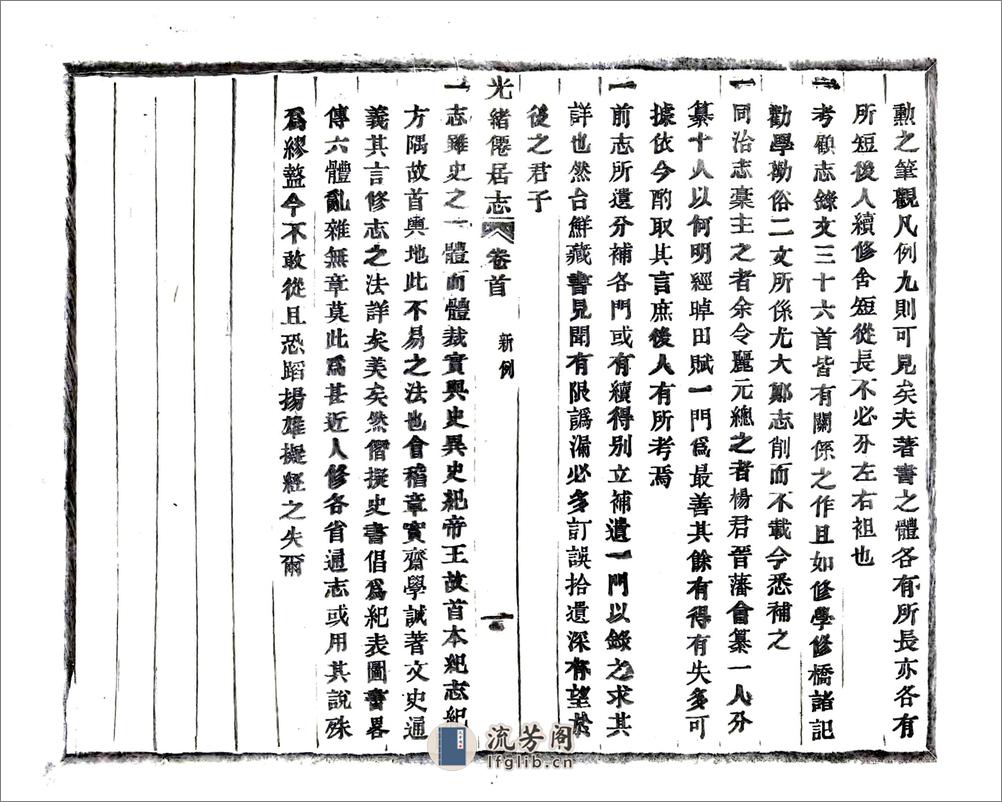 勲之筆觀凡例九則可見矣夫著書之體各有所長亦各有
所短後人續修舍短從長不必分左右袒也
一考顧志錄文三十六首皆有關係之作且如修學修橋諸記
勸學勸俗二文所係尤大鄭志削而不載今悉補之
一同治志稾主之者余令麗元總之者楊君晉藩會纂一人分
纂十人以何明經晫田賦一門爲最善其餘有得有失多可
據依今酌取其言庶後人有所考焉
一前志所遺分補各門或有續得別立補遺一門以錄之求其
詳也然台鮮藏書見聞有限譌漏必多訂誤拾遺深有望於
後之君子
光緒僊居志 卷首 新例 二
一志雖史之一體而體裁實與史異史紀帝王故首本紀志紀
方隅故首輿地此不易之法也會稽章實齋學誠著文史通
義其言修志之法詳矣美矣然僭擬史書倡爲紀表圖書畧
傳六體亂雜無章莫此爲甚近人修各省通志或用其說殊
爲繆盭今不敢從且恐蹈揚雄擬經之失爾
流芳阁
lfglib.cn